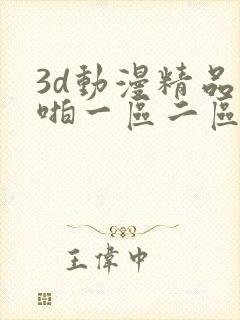 3d動漫精品
啪一區二區
王偉中